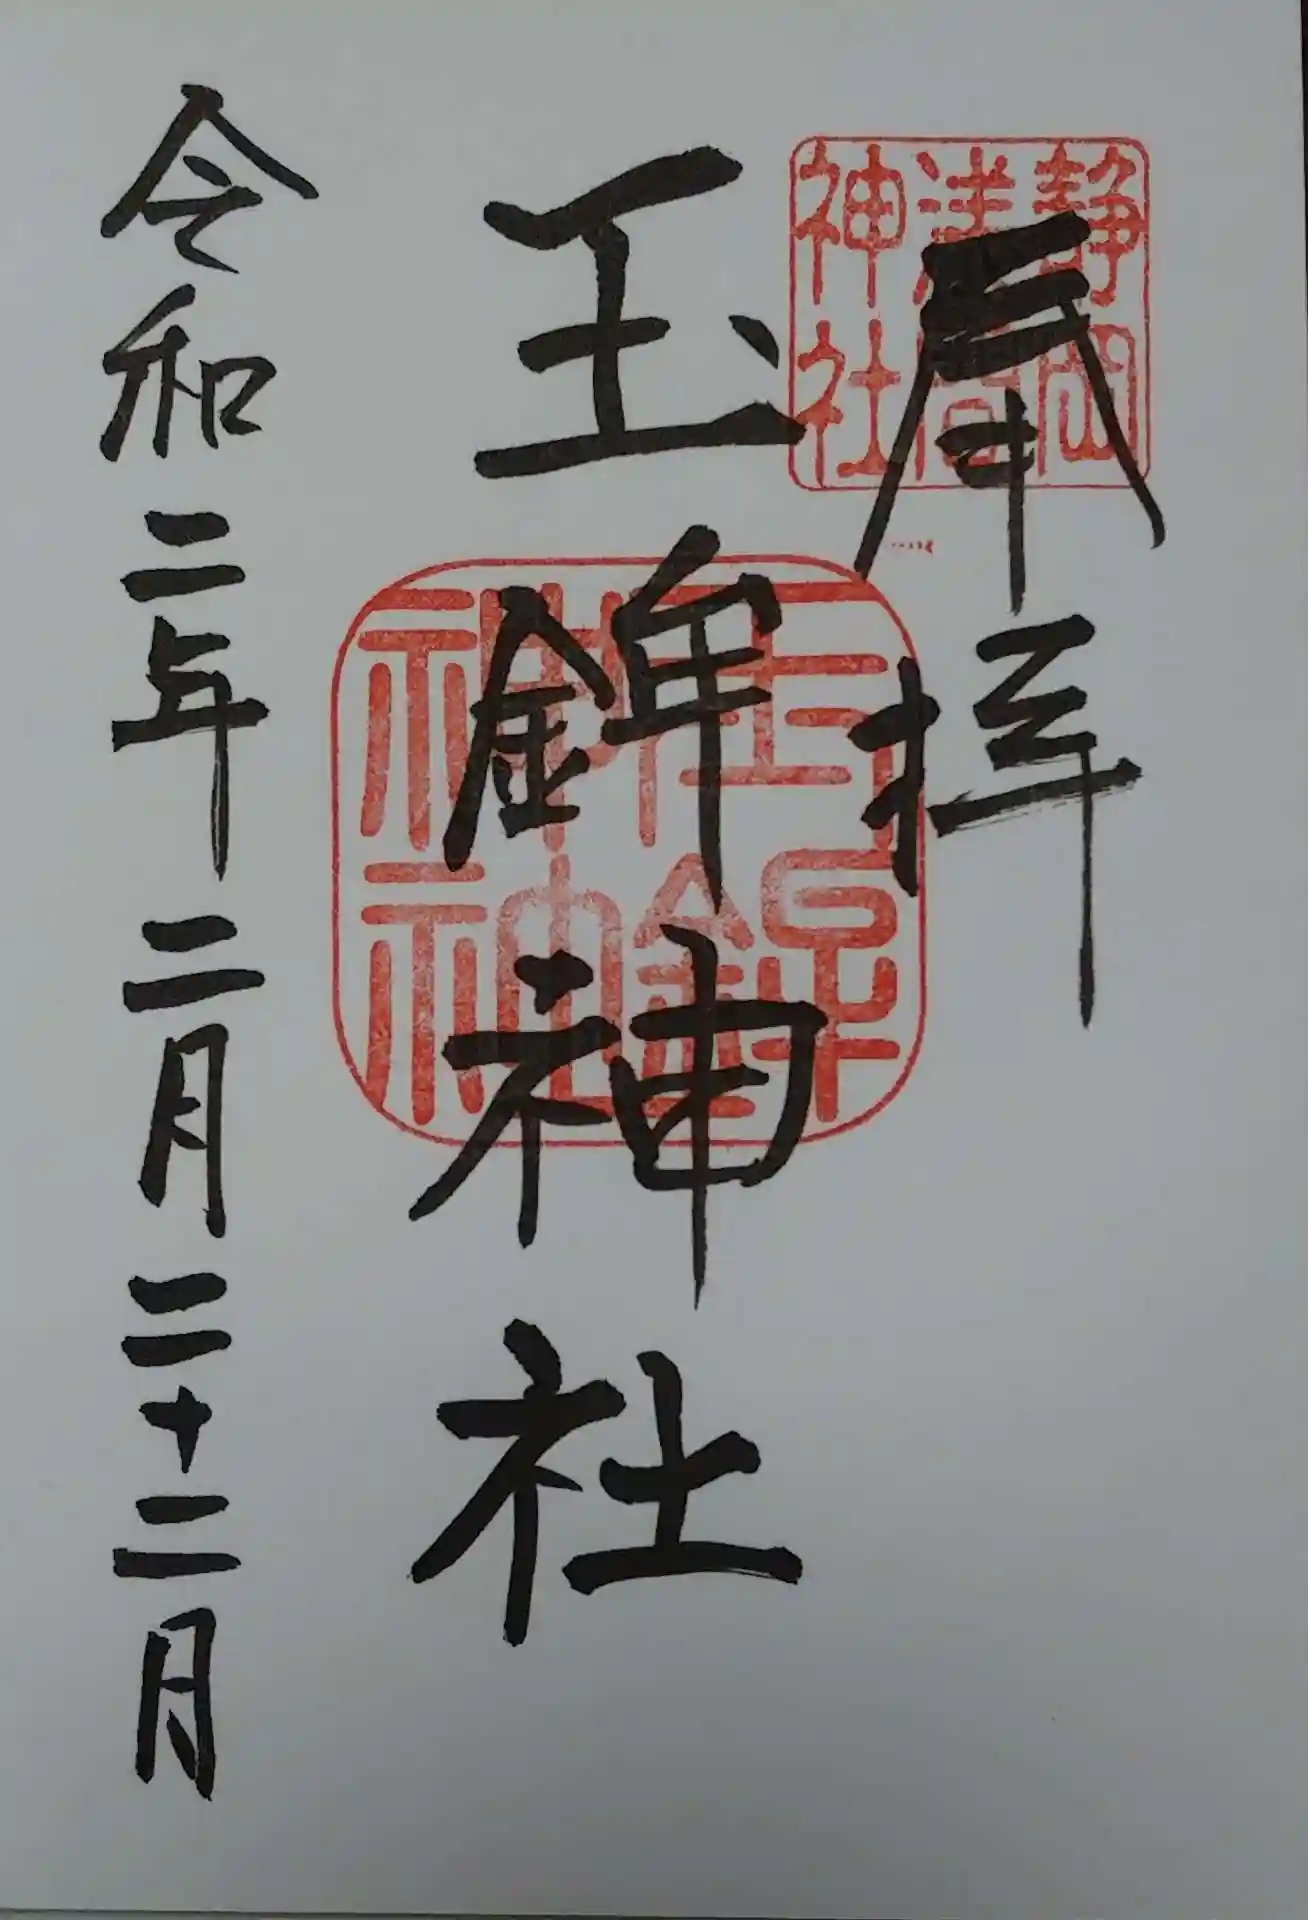 奉拝
静岡
浅間
神社
玉鉾神社
玉鉾
神社
令和二年二月二十二日